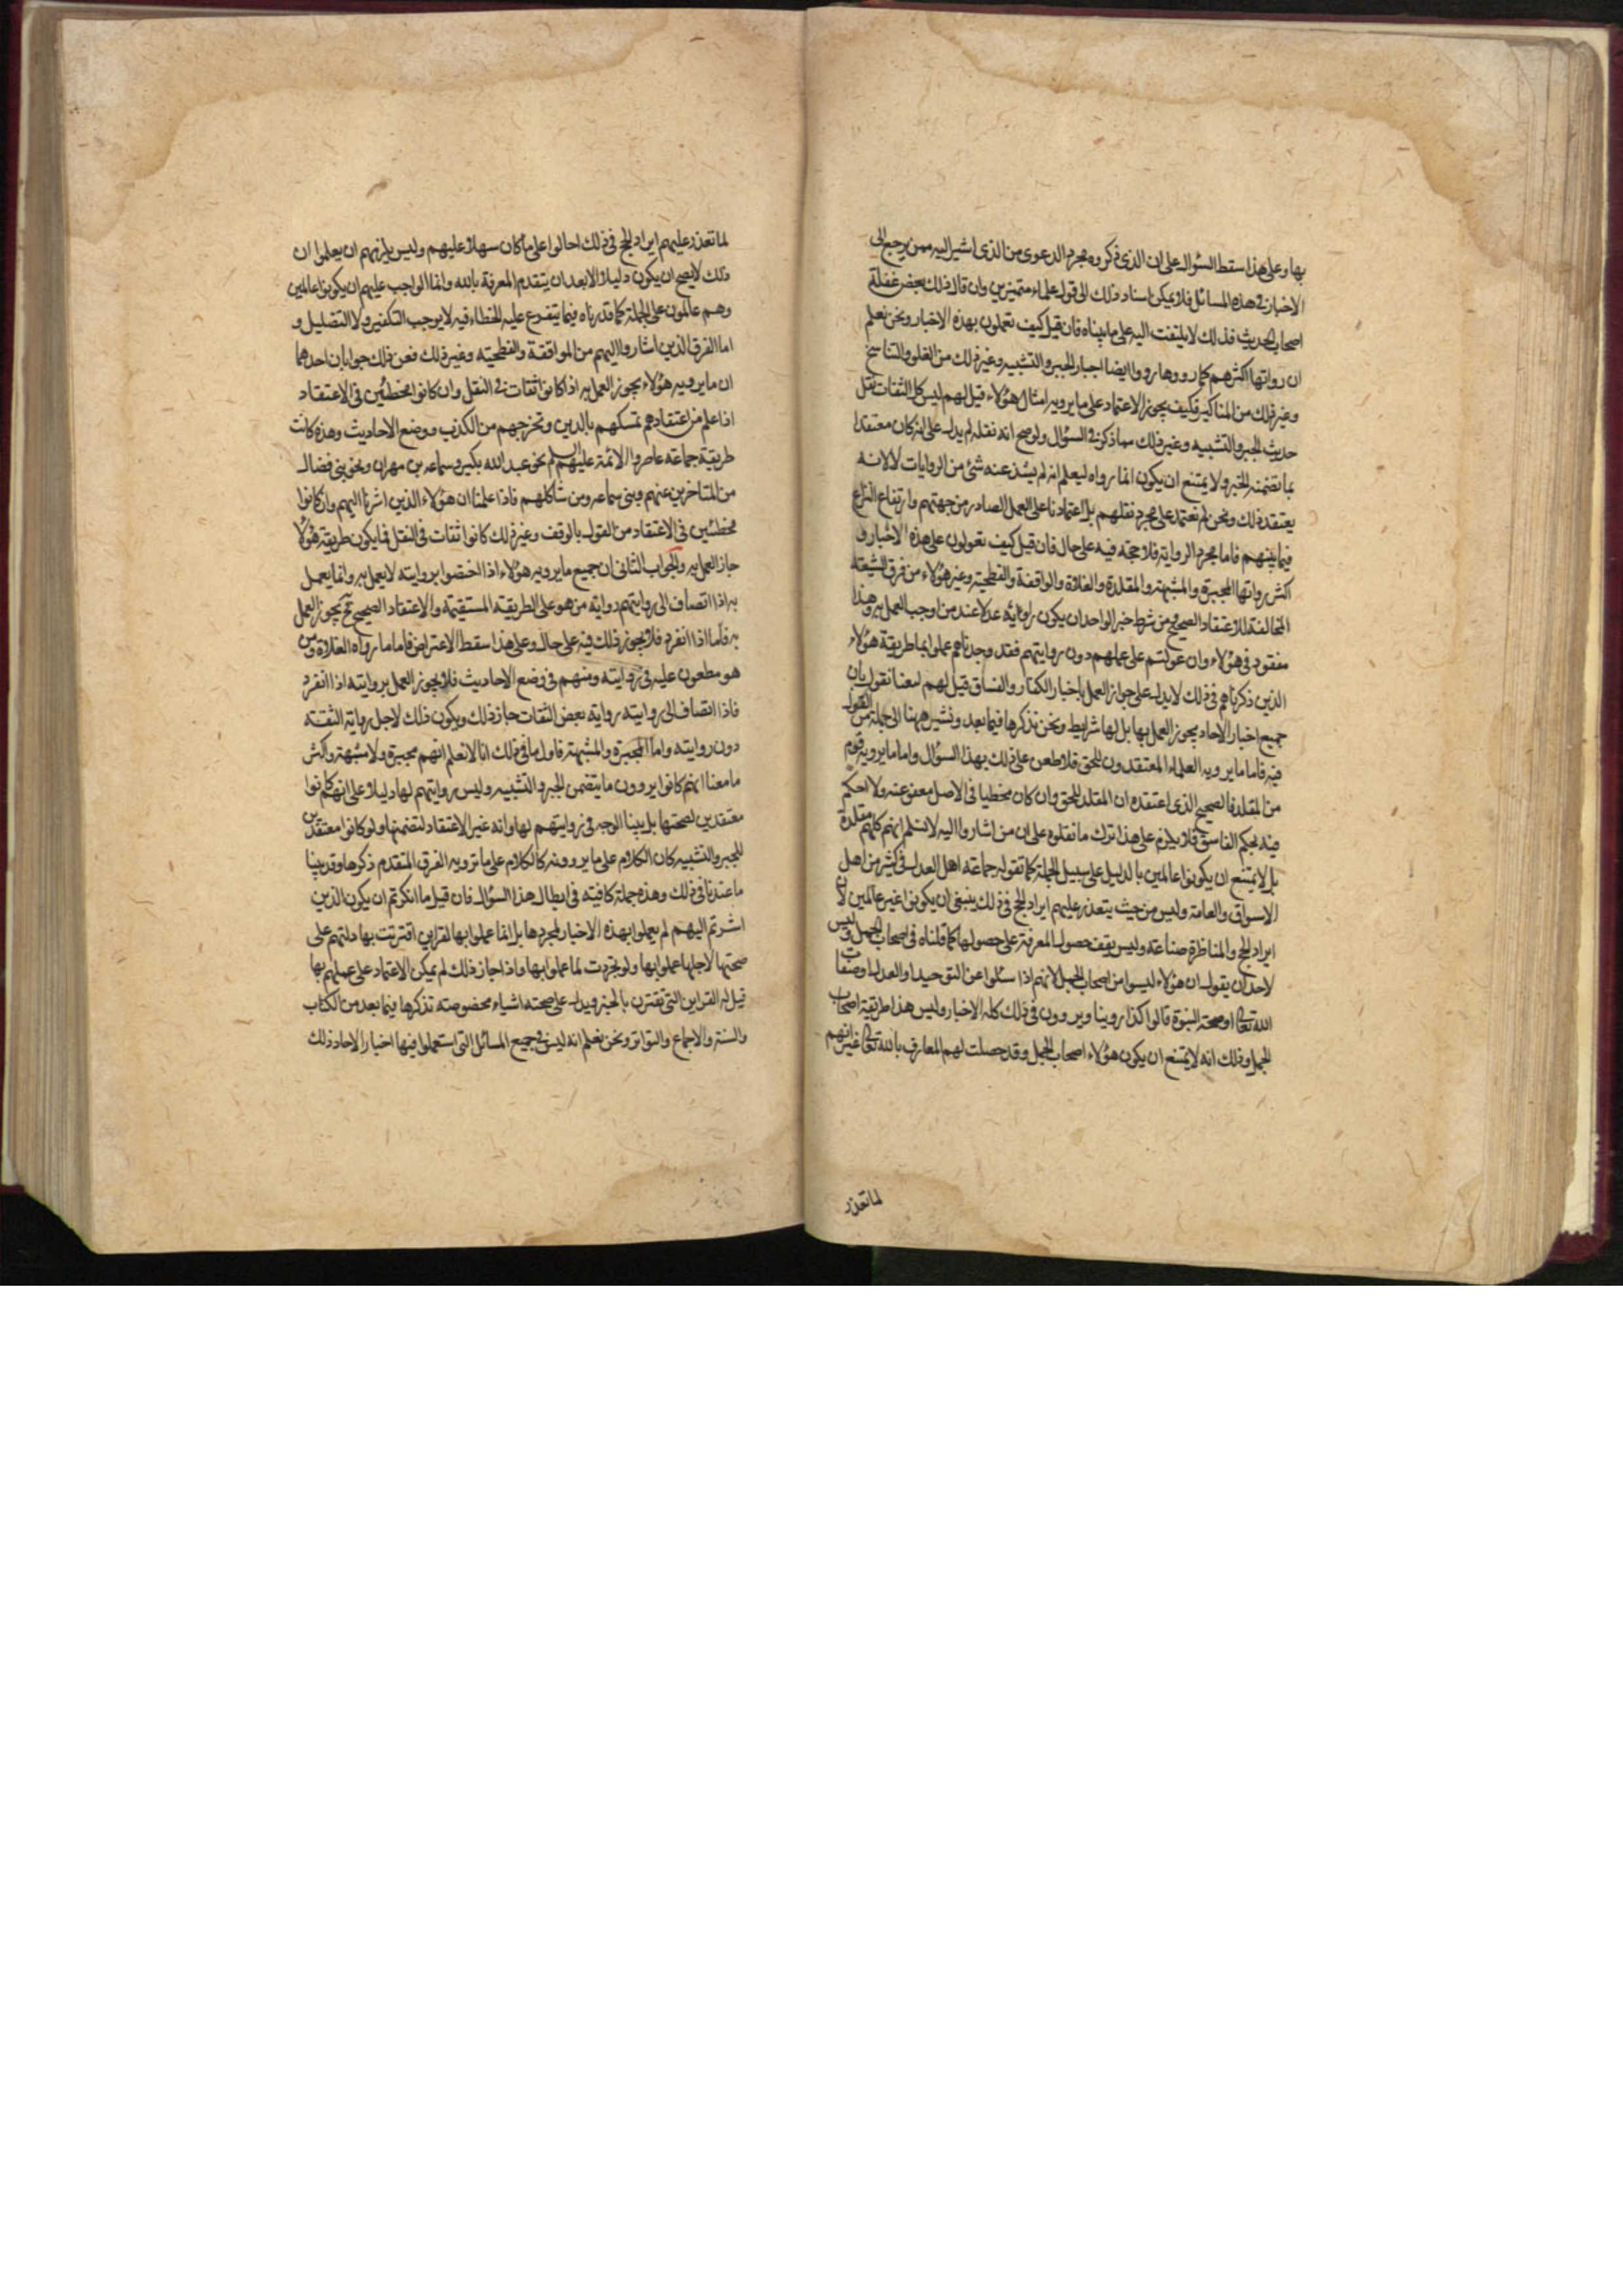 بها وعلى هذا سقط السؤال على ان الذى ذكروه مجرد الدعوى من الذى اشير اليه ممن يرجع الى
الاخبار فى هذه المسائل فلا يمكن اسناد ذلك الى قول علماء متميزين وان قال ذلك بعض غفلة
اصحاب الحديث فذلك لا يلتفت اليه على ما بيناه فان قيل كيف تعملون بهذه الاخبار ونحن نعلم
ان رواتها اكثرهم كما رووها رووا ايضا اخبار الجبر والتشبيه وغير ذلك من الغلو والتناسخ
وغير ذلك من المناكير فكيف يجوز الاعتماد على ما يرويه امثال هؤلاء قيل لهم ليس كل الثقات نقل
حديث الجبر والتشبيه وغير ذلك مما ذكر فى السؤال ولو صح انه نقله لم يدل على انه كان معتقدا
بما تضمنه الخبر ولا يمتنع ان يكون انما رواه ليعلم انه لم يشذ عنه شئ من الروايات لا لانه
يعتقد ذلك ونحن لم نعتمد على مجرد نقلهم بل اعتمادنا على العمل الصادر من جهتهم وارتفاع النزاع
فيما بينهم فاما مجرد الرواية فلا حجة فيه على حال فان قيل كيف تعولون على هذه الاخبار و
اكثر رواتها المجبرة والمشبهة والمقلدة والغلاة والواقفة والفطحية وغير هؤلاء من فرق الشيعة
المخالفة للاعتقاد الصحيح ومن شرط خبر الواحد ان يكون راويه عدلا عند من اوجب العمل به وهذا
مفقود فى هؤلاء وان عولتم على عملهم دون روايتهم فقد وجدناهم عملوا بما طريقة هؤلاء
الذين ذكرناهم فى ذلك لا يدل على جواز العمل باخبار الكفار والفساق قيل لهم لسنا نقول بان
جميع اخبار الاحاد يجوز العمل بها بل لها شرايط ونحن نذكرها فيما بعد ونشير ههنا الى جملة من القول
فيه فاما ما يرويه العلماء المعتقدون للحق فلا طعن على ذلك بهذا السؤال واما ما يرويه قوم
من المقلدة فالصحيح الذى اعتقده ان المقلد للحق وان كان مخطيا فى الاصل معفو عنه ولا احكم
فيه بحكم الفاسق فلا يلزم على هذا ترك ما نقلوه على ان من اشاروا اليه لا نسلم انهم كلهم مقلدة
بل لا يمتنع ان يكونوا عالمين بالدليل على سبيل الجملة كما تقوله جماعة اهل العدل فى كثير من اهل
الاسواق والعامة وليس من حيث يتعذر عليهم ايراد الحجج فى ذلك ينبغى ان يكونوا غير عالمين لان
ايراد الحجج والمناظرة صناعة وليس يقف حصول المعرفة على حصولها كما قلناه فى اصحاب الجمل وليس
لاحد ان يقول ان هؤلاء ليسوا من اصحاب الجمل لانهم اذا سئلوا عن التوحيد او العدل او صفات
الله تعالى او صحة النبوة قالوا كذا روينا ويروون فى ذلك كله الاخبار وليس هذا طريقة اصحاب
الجمل وذلك انه لا يمتنع ان يكون هؤلاء اصحاب الجمل وقد حصلت لهم المعارف بالله تعالى غير انهم
لما تعذر
لما تعذر عليهم ايراد الحجج فى ذلك احالوا على ما كان سهلا عليهم وليس يلزمهم ان يعلموا ان
ذلك لا يصح ان يكون دليلا الا بعد ان يتقدم المعرفة بالله وانما الواجب عليهم ان يكونوا عالمين
وهم عالمون على الجملة كما قدرناه فيما يتفرع عليه الخطاء فيه لا يوجب التكفير ولا التضليل و
اما الفرق الذين اشاروا اليهم من الواقفة والفطحية وغير ذلك فعن ذلك جوابان احدهما
ان ما يرويه هؤلاء يجوز العمل به اذا كانوا ثقات فى النقل وان كانوا مخطئين فى الاعتقاد
اذا علم من اعتقادهم تمسكهم بالدين وتحرجهم من الكذب ووضع الاحاديث وهذه كانت
طريقة جماعة عاصروا الائمة عليهم السلم نحو عبد الله بكير وسماعه بن مهران ونحو بنى فضال
من المتاخرين عنهم وبنى سماعه ومن شاكلهم فاذا علمنا ان هؤلاء الذين اشرنا اليهم وان كانوا
مخطئين فى الاعتقاد من القول بالوقف وغير ذلك كانوا ثقات فى النقل فما يكون طريقه هؤلاء
جاز العمل به والجواب الثانى ان جميع ما يرويه هؤلاء اذا اختصوا بروايته لا يعمل به وانما يعمل
به اذا انضاف الى روايتهم رواية من هو على الطريقة المستقيمة والاعتقاد الصحيح فح يجوز العمل
به فاما اذا انفرد فلا يجوز ذلك فيه على حال وعلى هذا سقط الاعتراض فاما ما رواه الغلاة ومن
هو مطعون عليه فى روايته ومتهم فى وضع الاحاديث فلا يجوز العمل بروايته اذا انفرد
فاذا انضاف الى روايته رواية بعض الثقات جاز ذلك ويكون ذلك لاجل رواية الثقة
دون روايته واما المجبرة والمشبهة فاول ما فى ذلك انا لا نعلم انهم مجبرة ولا مشبهة واكثر
ما معنا انهم كانوا يروون ما يتضمن الجبر والتشبيه وليس روايتهم لها دليلا على انهم كانوا
معتقدين لصحتها بل بينا الوجه فى روايتهم لها وانه غير الاعتقاد لمتضمنها ولو كانوا معتقدين
للجبر والتشبيه كان الكلام على ما يروونه كالكلام على ما ترويه الفرق المتقدم ذكرها وقد بينا
ما عندنا فى ذلك وهذه جملة كافية فى ابطال هذا السؤال فان قيل ما انكرتم ان يكون الذين
اشرتم اليهم لم يعملوا بهذه الاخبار لمجردها بل انما عملوا بها لقراين اقترنت بها دلتهم على
صحتها لاجلها عملوا بها ولو تجردت لما عملوا بها واذا جاز ذلك لم يمكن الاعتماد على عملهم بها
قيل له القراين التى تقترن بالخبر ويدل على صحته اشياء مخصوصة نذكرها فيما بعد من الكتاب
والسنة والاجماع والتواتر ونحن نعلم انه ليس فى جميع المسائل التى استعملوا فيها اخبار الاحاد ذلك